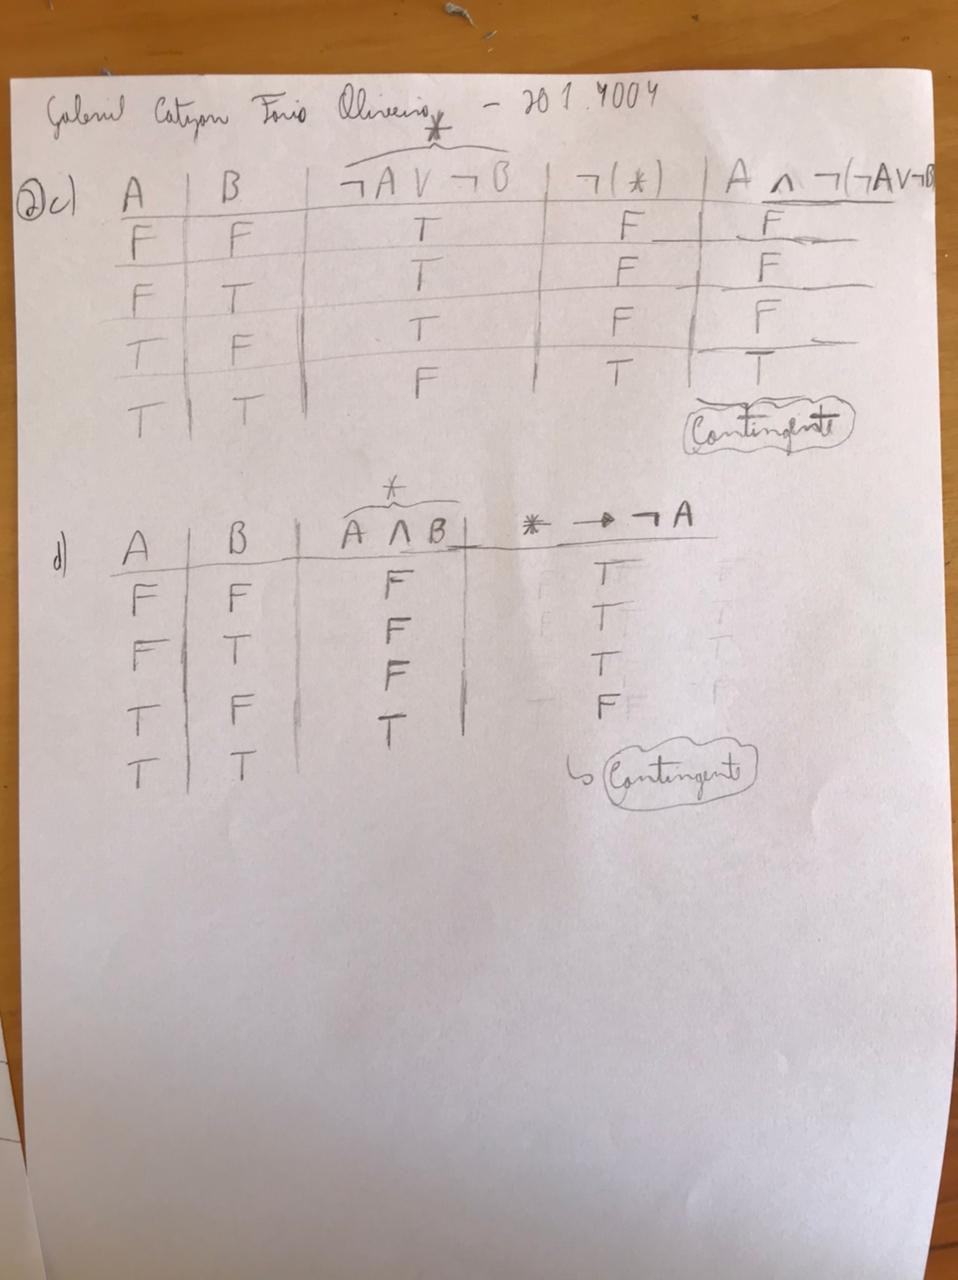 Gabriel Catizon Faria Oliveira - 201.4004
*
2 c) A B ¬A V ¬B ¬(*) A ∧ ¬(¬A∨¬B)
F F T F F
F T T F F
T F T F F
T T F T T
Contingente
*
d) A B A ∧ B * → ¬A
F F F T
F T F T
T F F T
T T T F
↳ Contingente